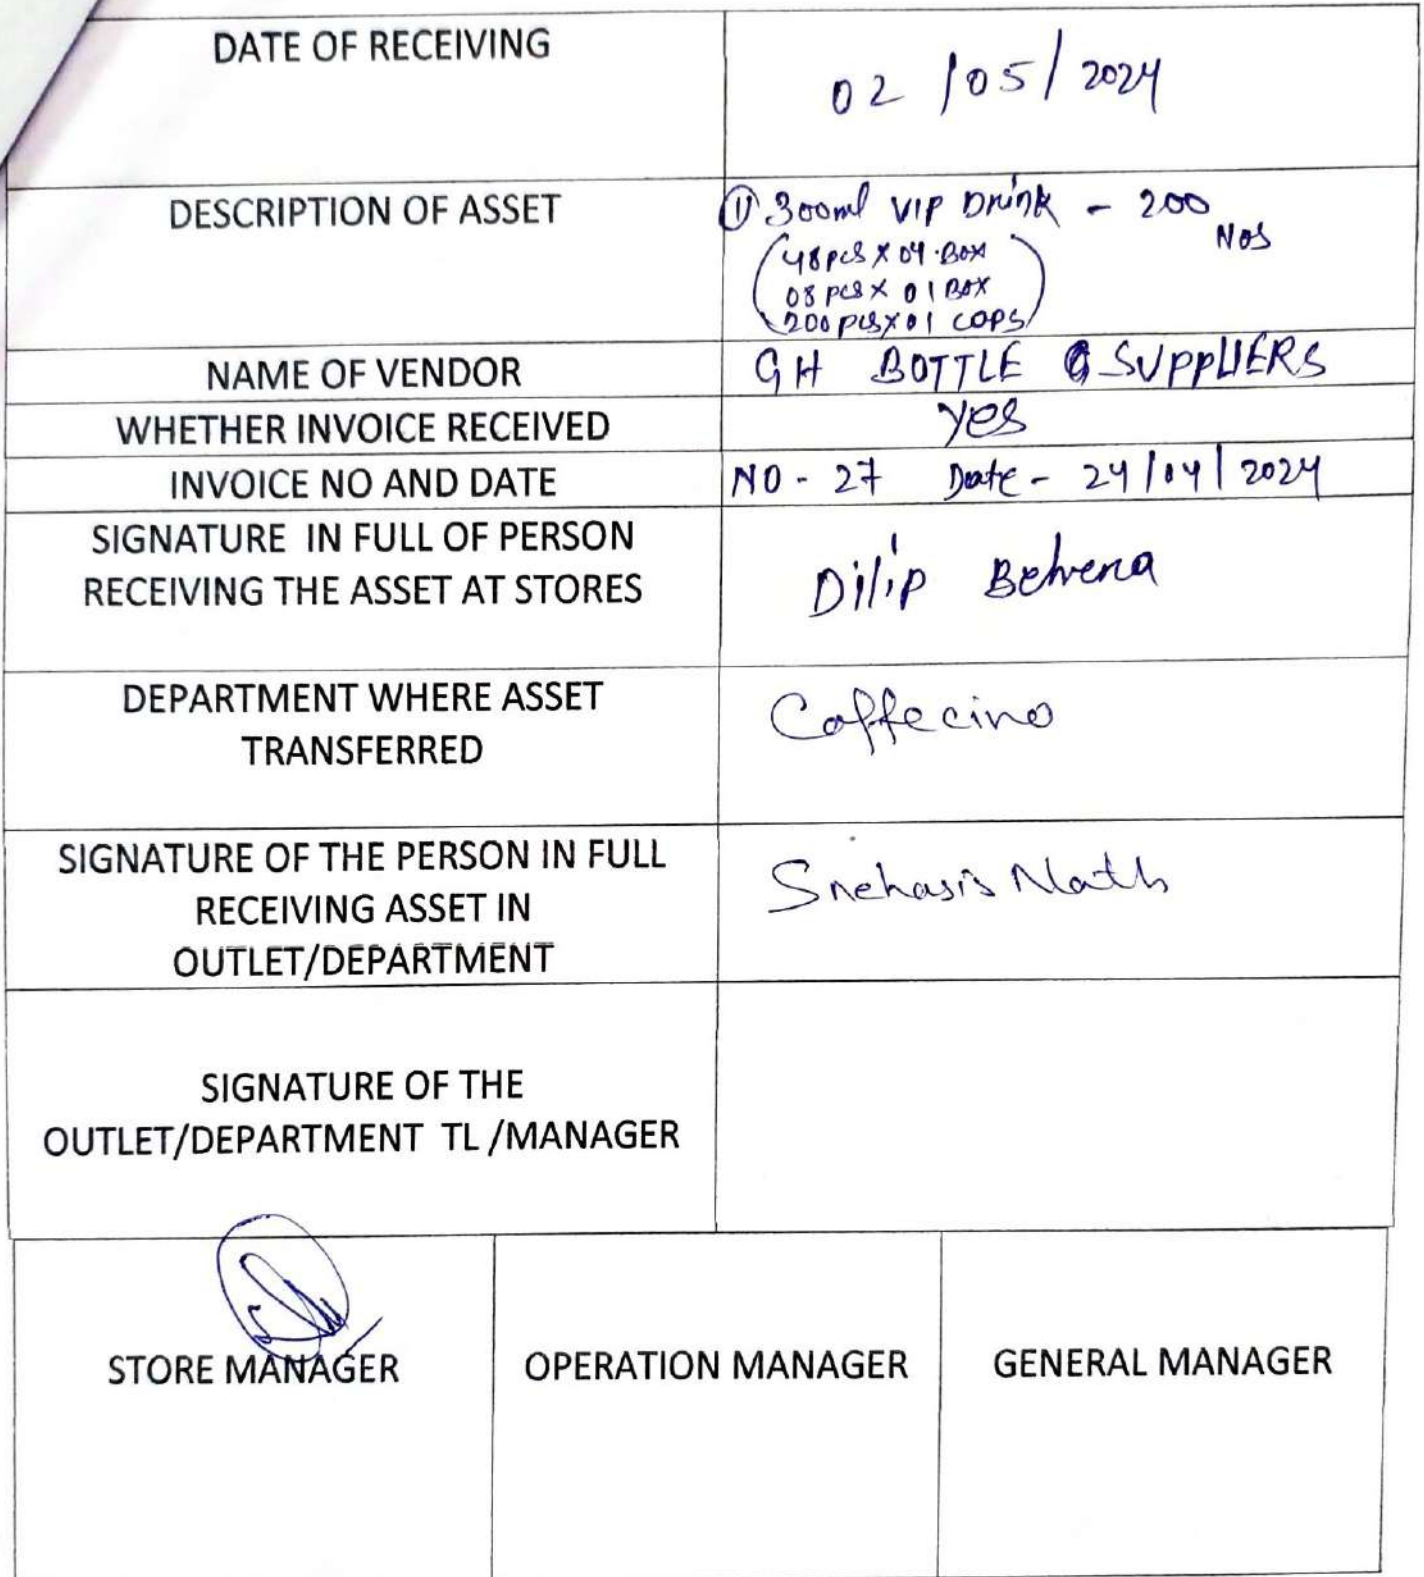 DATE OF RECEIVING
02/05/2024
DESCRIPTION OF ASSET
① 300ml VIP Drink - 200 Nos
(48pcs X 04 Box
08 pcs X 01 Box
200 pcs X 01 COPS)
NAME OF VENDOR
GH BOTTLE SUPPLIERS
WHETHER INVOICE RECEIVED
Yes
INVOICE NO AND DATE
NO - 27 Date - 24/04/2024
SIGNATURE IN FULL OF PERSON
RECEIVING THE ASSET AT STORES
Dilip Behera
DEPARTMENT WHERE ASSET
TRANSFERRED
Caffecino
SIGNATURE OF THE PERSON IN FULL
RECEIVING ASSET IN
OUTLET/DEPARTMENT
Snehasis Nath
SIGNATURE OF THE
OUTLET/DEPARTMENT TL /MANAGER
STORE MANAGER
OPERATION MANAGER
GENERAL MANAGER